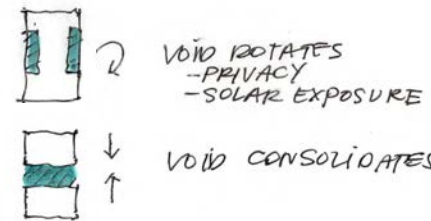 VOID ROTATES
-PRIVACY
-SOLAR EXPOSURE
VOID CONSOLIDATES